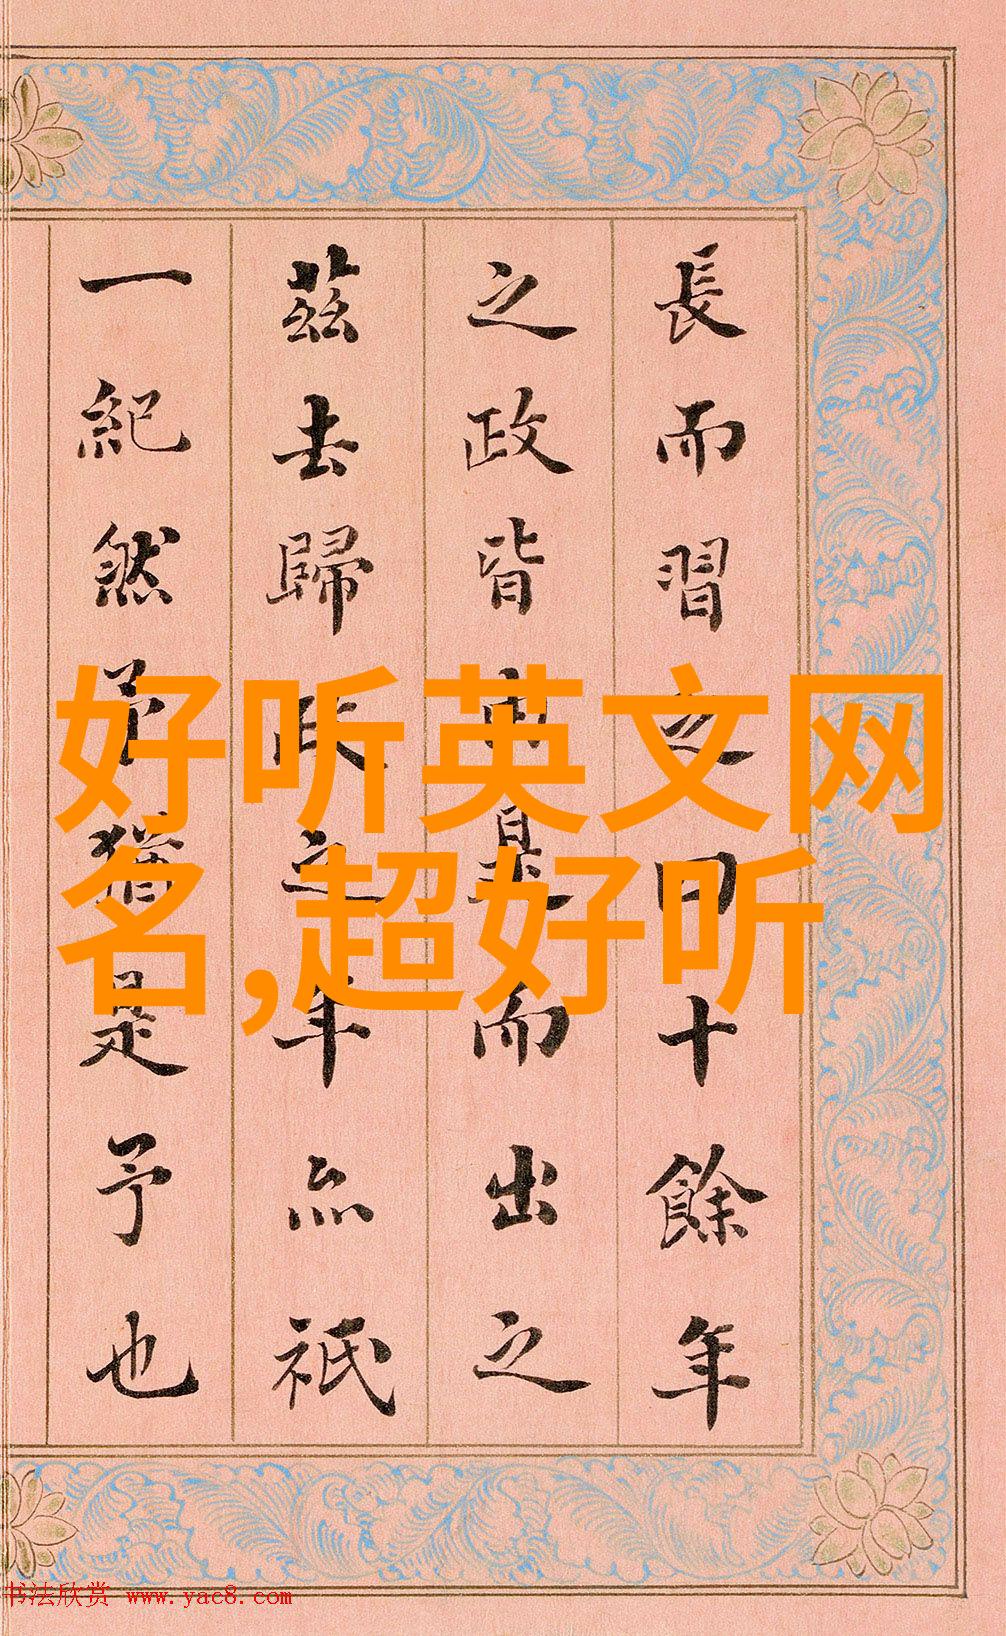 好听英文网
名,超好听
長而習之四十餘年
之政皆由是而出之
茲去歸政之年亦祇
一紀然予猶是予也
书法欣赏 www.yac8.com